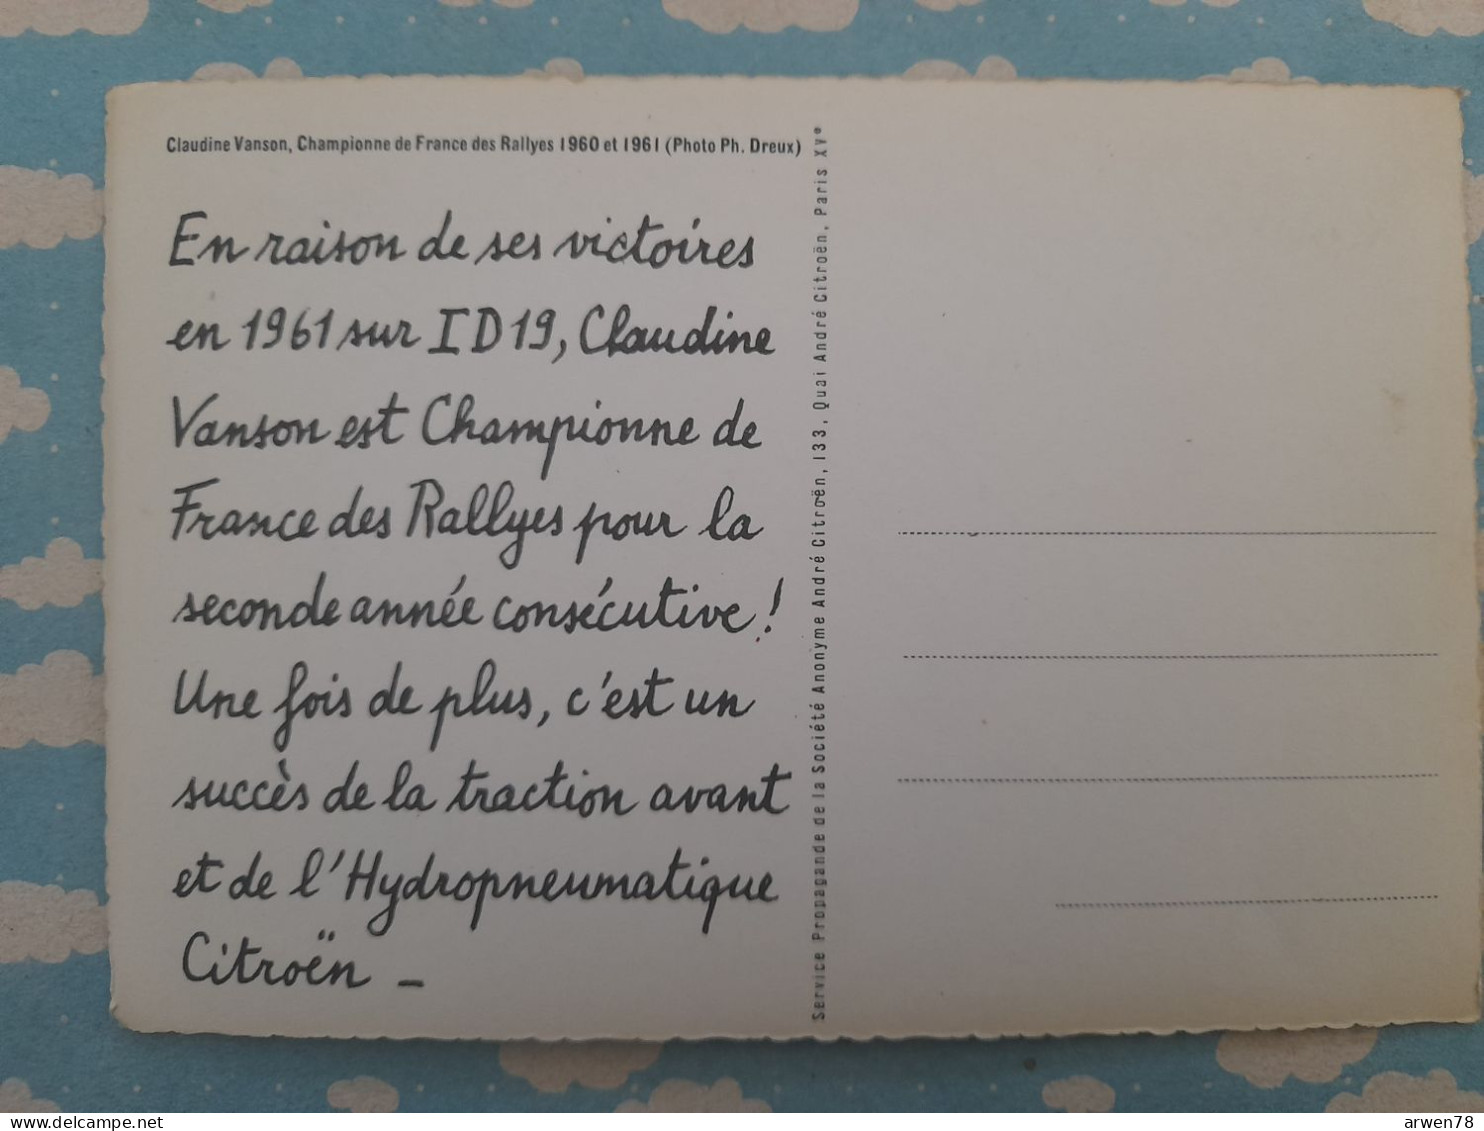 Claudine Vanson, Championne de France des Rallyes 1960 et 1961 (Photo Ph. Dreux)
En raison de ses victoires
en 1961 sur ID19, Claudine
Vanson est Championne de
France des Rallyes pour la
seconde année consécutive!
Une fois de plus, c'est un
succès de la traction avant
et de l'Hydropneumatique
Citroën –
Service Propagande de la Société Anonyme André Citroën, 133, Quai André Citroën, Paris XVe
delcampe.net
arwen78